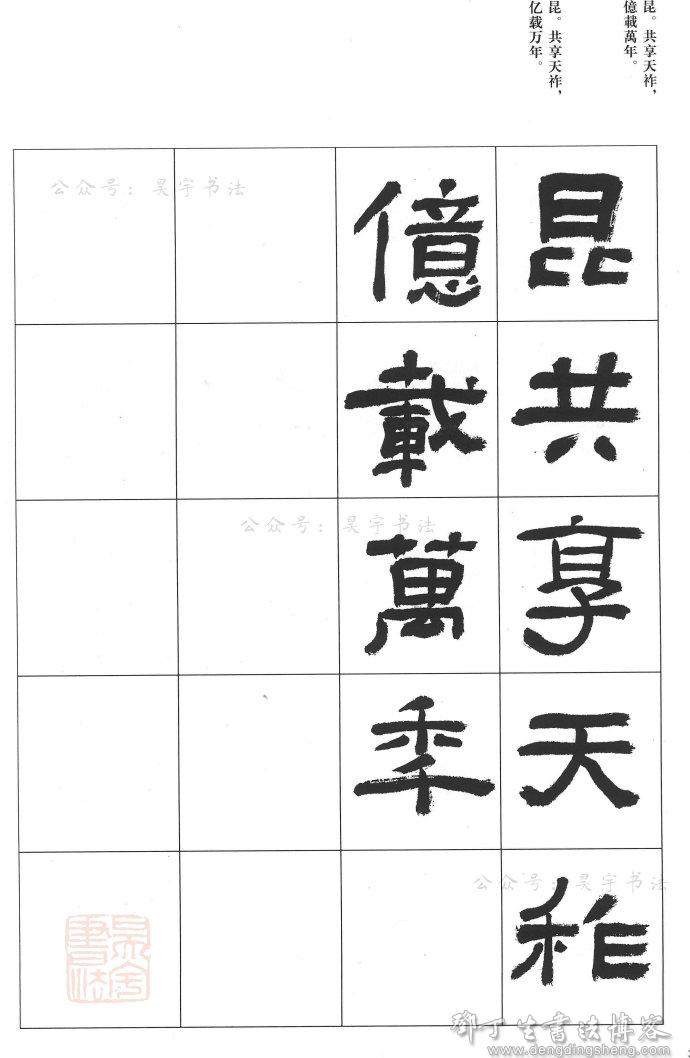 昆。共享天祚，
億載萬年。
昆。共享天祚，
亿载万年。
昆共享天祚
億載萬年
公众号：昊宇书法
公众号：昊宇书法
公众号：昊宇书法
昊宇書法
鄧丁生書法博客
www.dengdingsheng.com